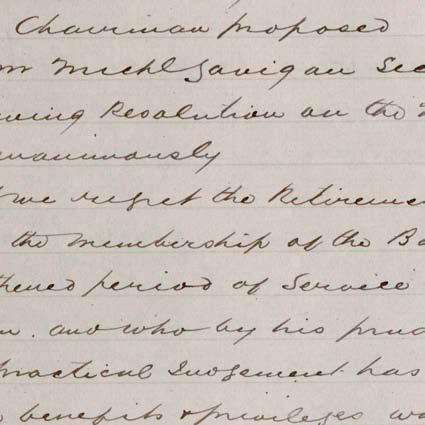 Chairman proposed
mr Michl Gavigan Sec
wing Resolution on the
unanimously
we regret the Retireme
the Membership of the Bo
thened period of Service
and who by his prud
practical Judgement has
benefits & privileges wa